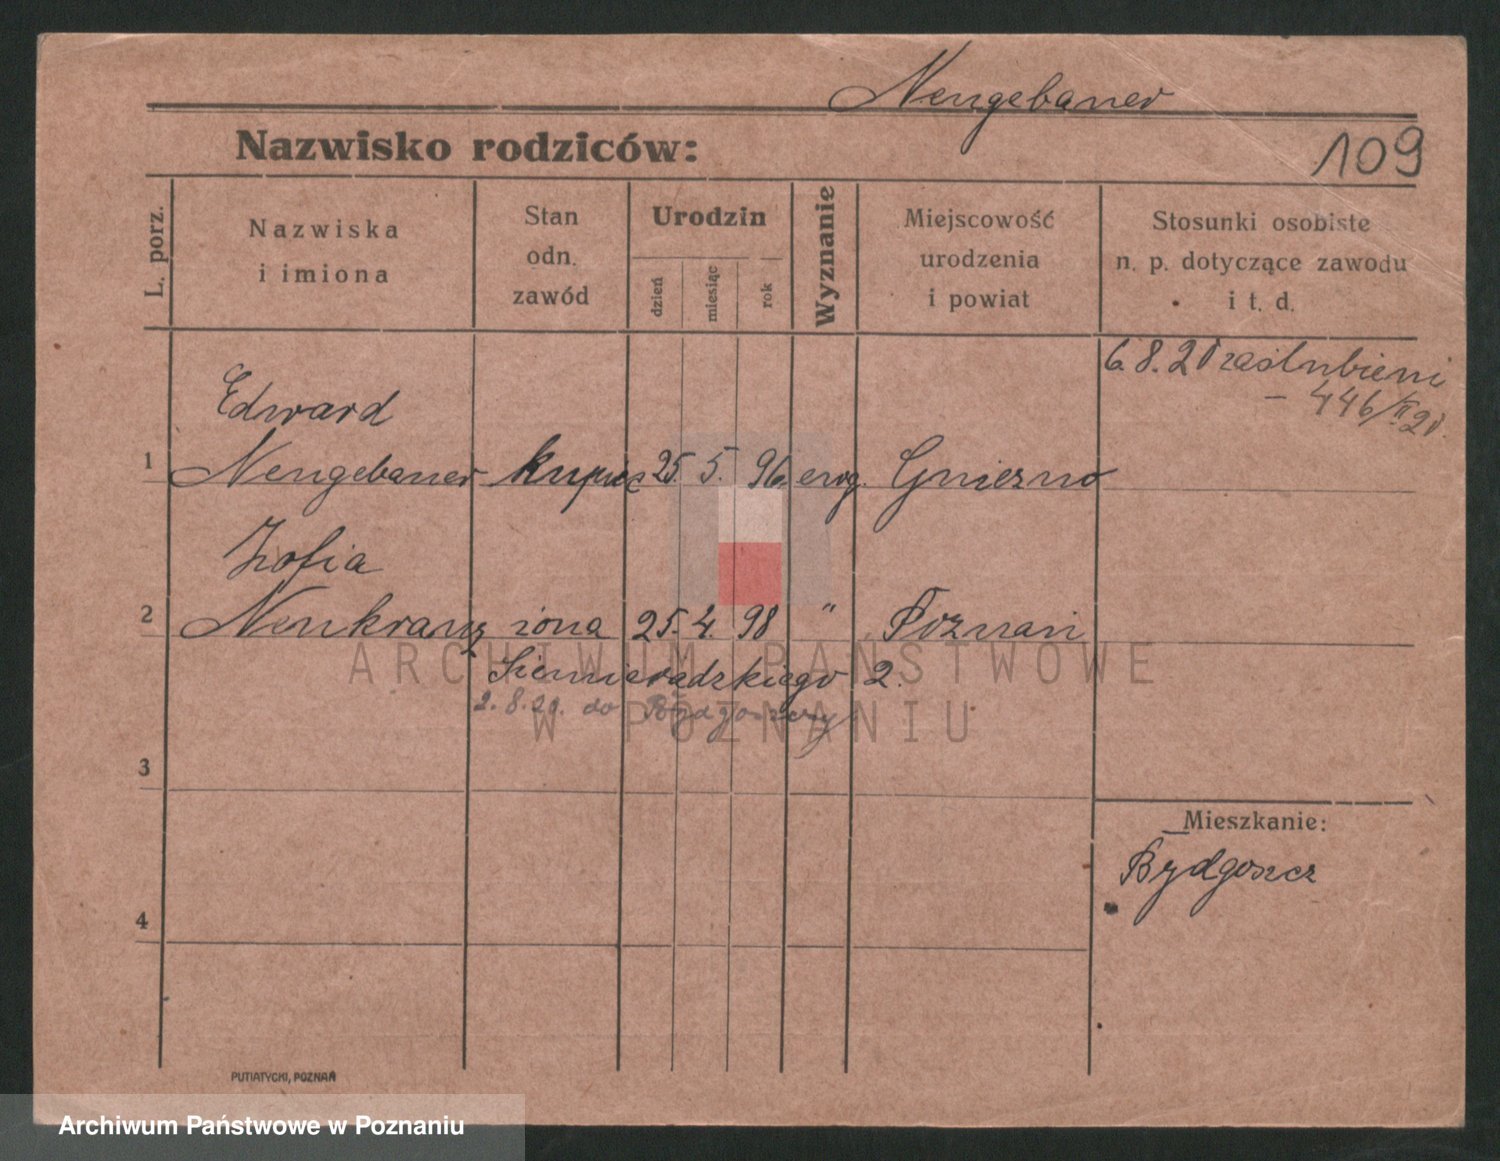 Neugebauer
Nazwisko rodziców:
109
L. porz.
Nazwiska
i imiona
Stan
odn.
zawód
Urodzin
dzień
miesiąc
rok
Wyznanie
Miejscowość
urodzenia
i powiat
Stosunki osobiste
n. p. dotyczące zawodu
i t. d.
6.8.20 zaślubieni
– 446/II 20.
Edward
1 Neugebauer kupiec 25. 5. 96. ewg. Gniezno
Zofia
2 Neukranz żona 25. 4. 98 " Poznań
Siemieradzkiego 2.
2.8.20. do Bydgoszczy
3
Mieszkanie:
Bydgoszcz
4
PUTIATYCKI, POZNAŃ
ARCHIWUM PAŃSTWOWE
W POZNANIU
Archiwum Państwowe w Poznaniu